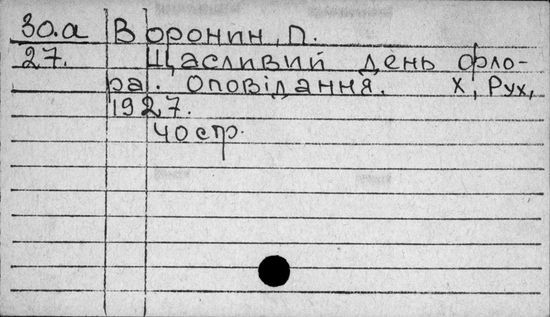 30.а Воронин, П.
27. Щасливий день Фло-
ра. Оповідання. Х, Рух,
1927.
40 стр.